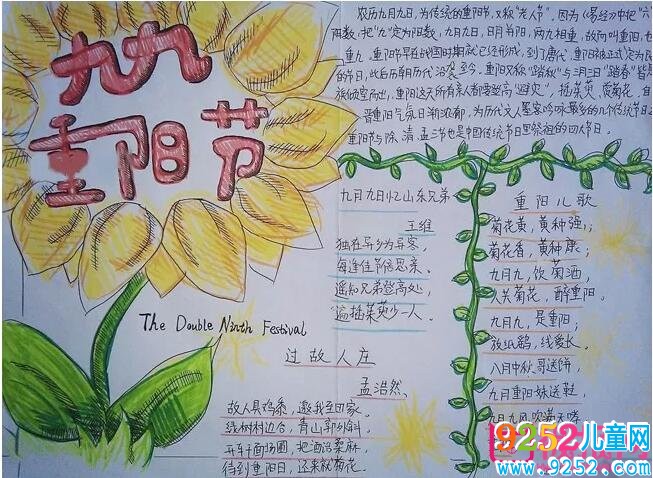 九九
重阳节
农历九月九日,为传统的重阳节,又称"老人节"。因为《易经》中把"六
阳数,把"九"定为阳数,九月九日,日月并阳,两九相重,故而叫重阳,也
重九,重阳节早在战国时期就已经形成,到了唐代,重阳被正式定为民
的节日,此后历朝历代沿袭至今。重阳又称"踏秋"与三月三日"踏春"皆是
族倾室而出,重阳这天所有亲人都要登高"避灾"。插茱萸、赏菊花。自
晋重阳气氛日渐浓郁,为历代文人墨客吟咏最多的几个传统节日之
重阳节与除、清、盂三节也是中国传统节日里祭祖的四大节日。
九月九日忆山东兄弟
王维
独在异乡为异客,
每逢佳节倍思亲。
遥知兄弟登高处,
遍插茱萸少一人。
重阳儿歌
菊花黄,黄种强;
菊花香,黄种康;
九月九,饮菊酒,
人共菊花,醉重阳。
九月九,是重阳;
放纸鹞,线爱长。
八月中秋,哥送饼,
九月重阳妹送鞋,
The Double Ninth Festival
过故人庄
孟浩然
故人具鸡黍,邀我至田家。
绿树村边合,青山郭外斜。
开车干面场圃,把酒话桑麻
待到重阳日,还来就菊花。
9252儿童网
www.9252.com